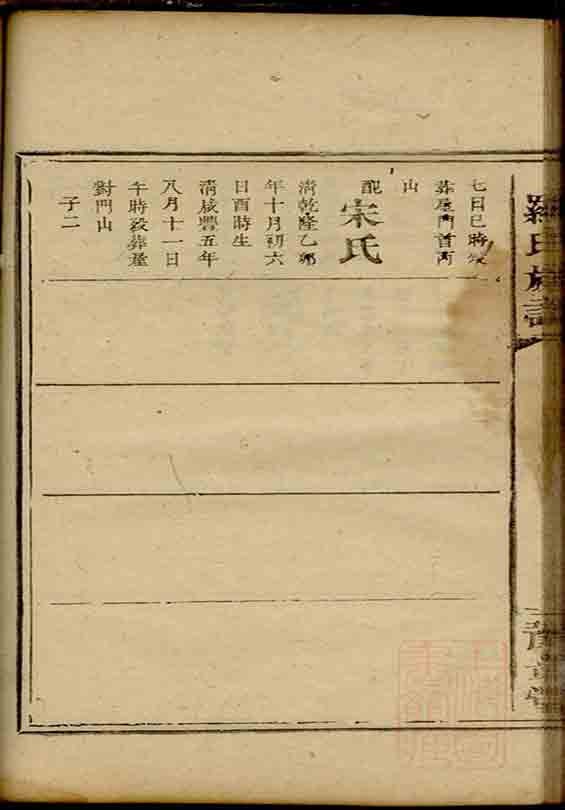 羅氏族譜
七日巳時歿
葬屋門首两
山
配宋氏
清乾隆乙卯
年十月初六
日酉時生
清咸豐五年
八月十一日
午時殁葬屋
對門山
子二